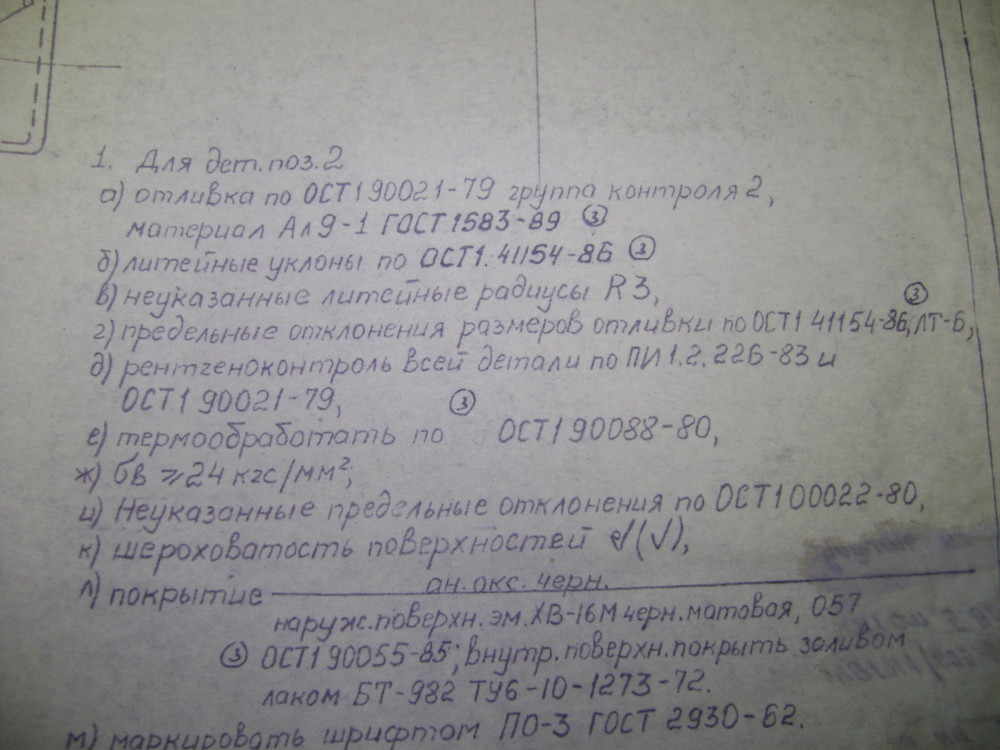 1. Для дет. поз. 2
а) отливка по ОСТ1 90021-79 группа контроля 2,
материал Ал9-1 ГОСТ 1583-89 ③
б) литейные уклоны по ОСТ1. 41154-86 ③
в) неуказанные литейные радиусы R3,
③
г) предельные отклонения размеров отливки по ОСТ1 41154-86, ЛТ-6,
д) рентгеноконтроль всей детали по ПИ 1.2. 226-83 и
ОСТ1 90021-79, ③
е) термообработать по ОСТ1 90088-80,
ж) бв ⩾24 кгс/мм²;
и) Неуказанные предельные отклонения по ОСТ1 00022-80,
к) шероховатость поверхностей √(√),
л) покрытие ан. окс. черн.
наруж. поверхн. эм. ХВ-16М черн. матовая, 057
③ ОСТ1 90055-85; внутр. поверхн. покрыть заливом
лаком БТ-982 ТУ6-10-1273-72.
м) маркировать шрифтом ПО-3 ГОСТ 2930-62.